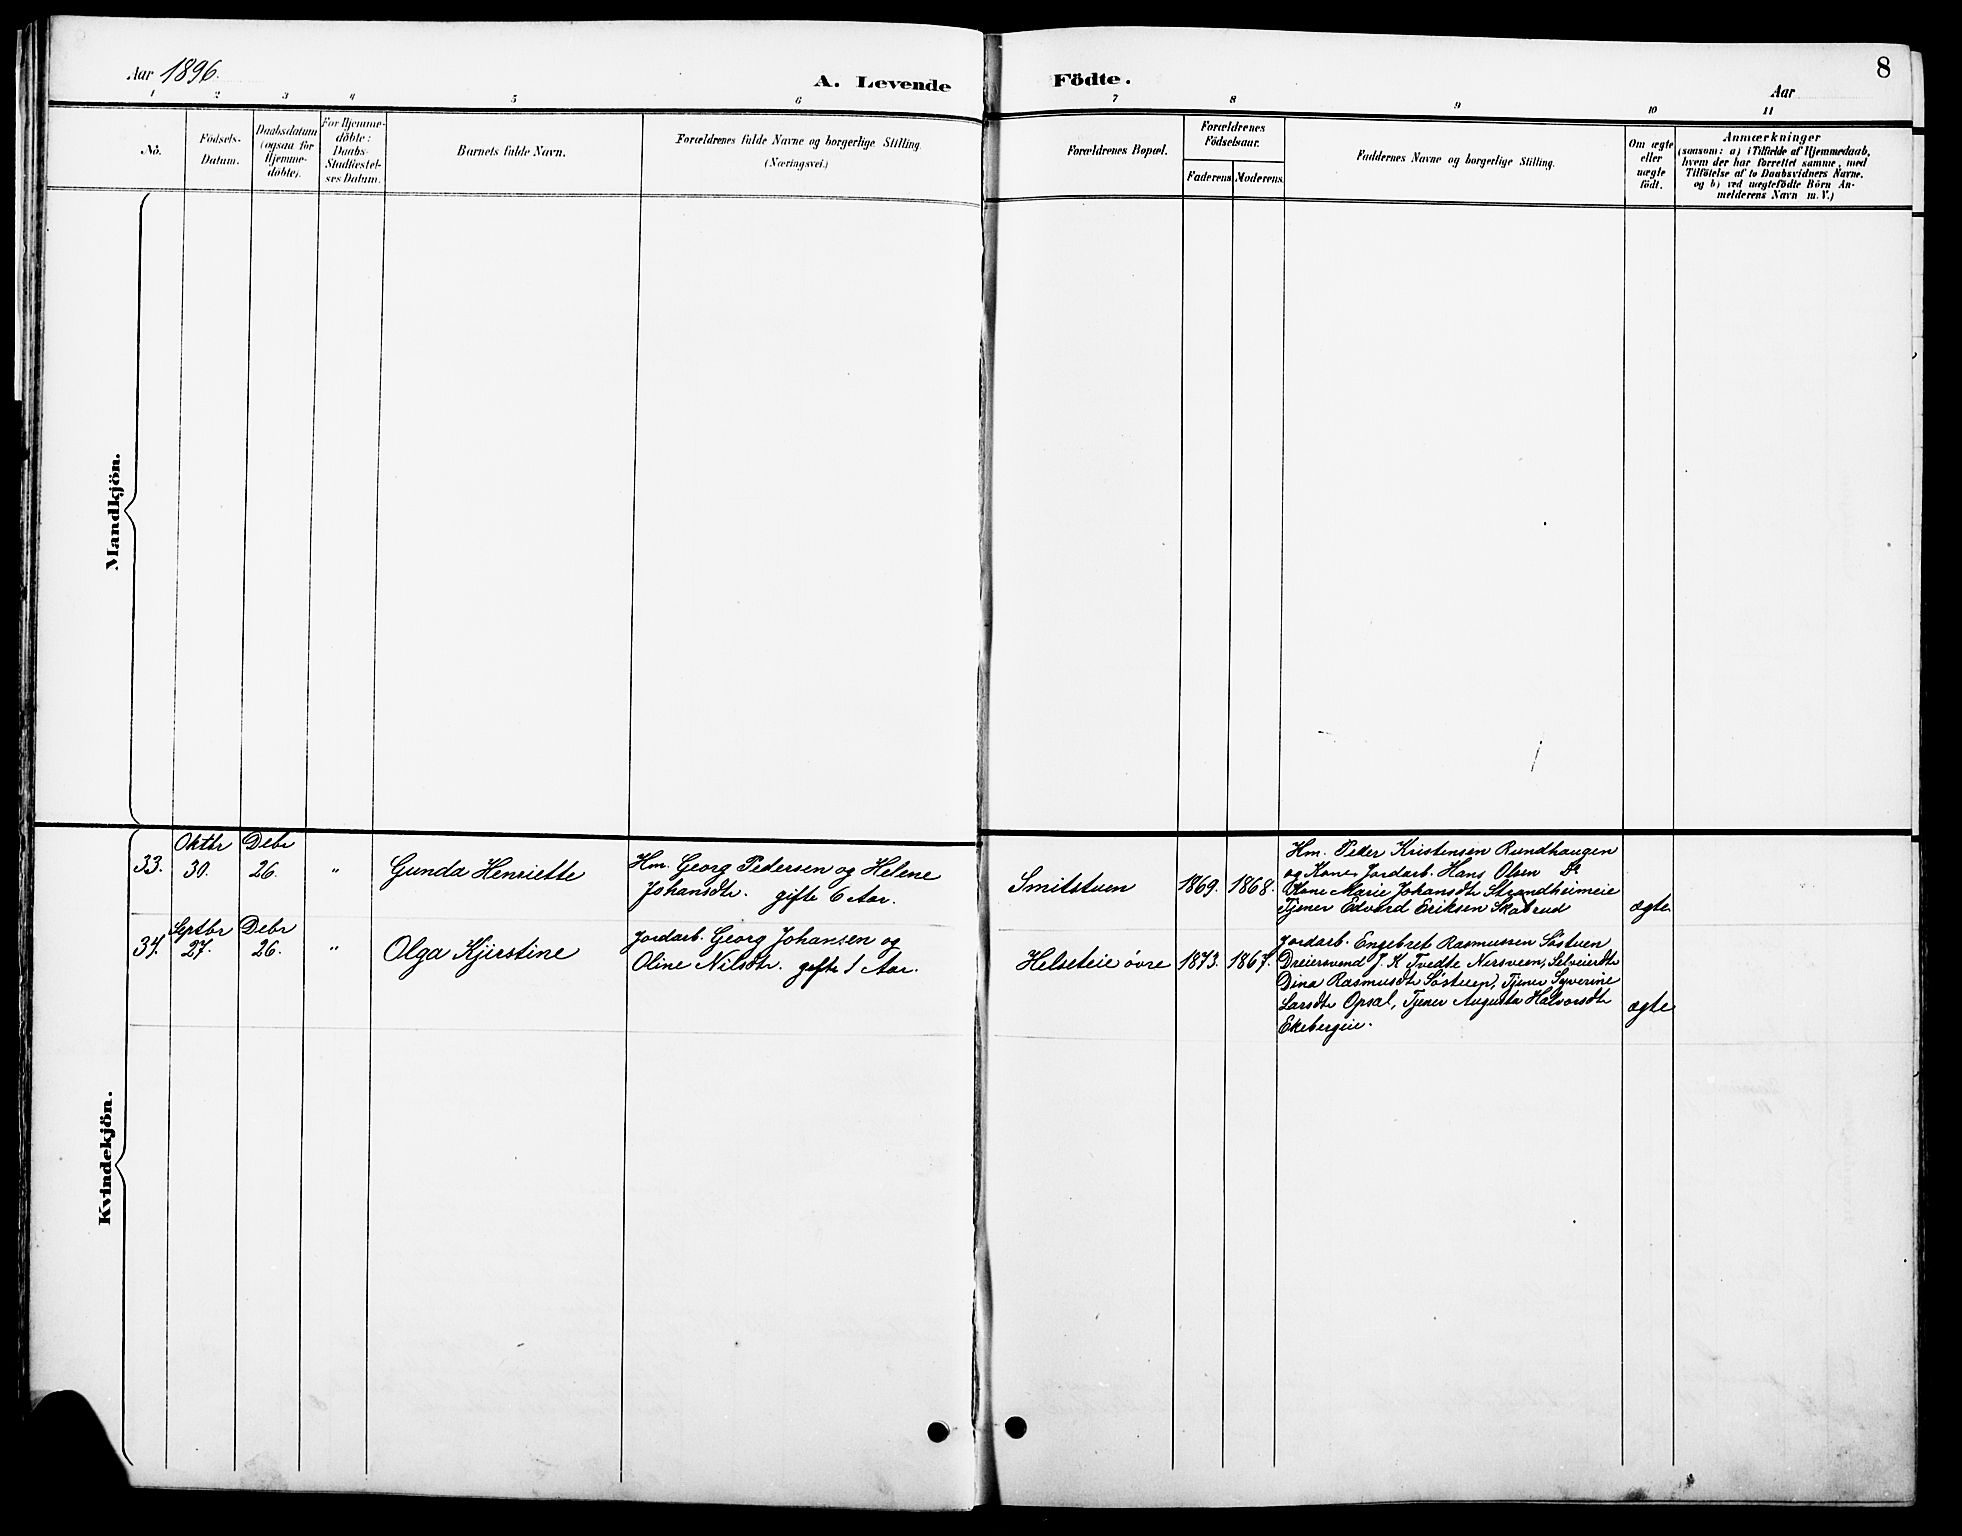 Aar 1896.
A. Levende Födte.
8
Aar
1 2 3 4 5 6 7 8 9 10 11
No.
Födsels-
Datum.
Daabsdatum
(ogsaa för
Hjemme-
döbte).
For Hjemme-
döbte:
Daabs-
Stadfæstel-
ses Datum.
Barnets fulde Navn.
Forældrenes fulde Navne og borgerlige Stilling.
(Næringsvei.)
Forældrenes Bopæl.
Forældrenes
Födselsaar.
Faderens Moderens.
Faddernes Navne og borgerlige Stilling.
Om ægte
eller
uægte
födt.
Anmærkninger
(saasom: a) i Tilfælde af Hjemmedaab,
hvem der har forrettet samme, med
Tilföielse af to Daabsvidners Navne.
og b) ved uægtefödte Börn An-
melderens Navn m. V.)
Mandkjön.
Kvindekjön.
33.
Oktbr
30.
Debr
26.
"
Gunda Henriette
Hm. Georg Pedersen og Helene
Johansdtr. gifte 6 Aar.
Smitstuen
1869.
1868.
Hm. Peder Kristensen Rundhaugen
og Kone, Jordarb. Hans Olsen Do
Kone Marie Johansdtr Strandheimeie
Tjener Edvard Eriksen Skabrud
ægte
34.
Septbr
27.
Debr
26.
"
Olga Kjirstine
Jordarb. Georg Johansen og
Oline Nilsdtr. gifte 1 Aar.
Helseteie øvre
1873.
1867.
Jordarb. Engebret Rasmussen Søstuen
Dreiersvend J. K Tvedte Nersveen, Selveierdtr
Dina Rasmusdtr Søstuen, Tjener Syverine
Larsdtr Opsal, Tjener Augusta Halvorsdtr
Ekebergeie.
ægte